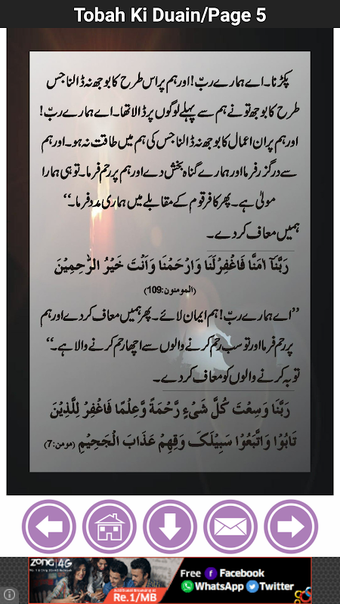 Tobah Ki Duain/Page 5
پکڑنا۔ اے ہمارے ربّ! اور ہم پر اس طرح کا بوجھ نہ ڈالنا جس
طرح کا بوجھ تو نے ہم سے پہلے لوگوں پر ڈالا تھا۔ اے ہمارے ربّ!
اور ہم پر ان اعمال کا بوجھ نہ ڈالنا جس کی ہم میں طاقت نہ ہو۔ اور ہم
سے درگزر فرما اور ہمارے گناہ بخش دے اور ہم پر رحم فرما۔ تو ہی ہمارا
مولیٰ ہے۔ پھر کافر قوم کے مقابلے میں ہماری مدد فرما۔‘‘
ہمیں معاف کر دے۔
رَبَّنَآ اٰمَنَّا فَاغْفِرْ لَنَا وَارْحَمْنَا وَاَنْتَ خَیْرُ الرّٰحِمِیْنَ
(المومنون:109)
’’اے ہمارے ربّ! ہم ایمان لائے۔ پھر ہمیں معاف کر دے اور ہم
پر رحم فرما اور تو سب رحم کرنے والوں سے اچھا رحم کرنے والا ہے۔‘‘
توبہ کرنے والوں کو معاف کر دے۔
رَبَّنَا وَسِعْتَ کُلَّ شَیْءٍ رَّحْمَةً وَّعِلْمًا فَاغْفِرْ لِلَّذِیْنَ
تَابُوْا وَاتَّبَعُوْا سَبِیْلَکَ وَقِهِمْ عَذَابَ الْجَحِیْمِ (مومن:7)
zong 4G
Re.1/MB
Free Facebook
WhatsApp Twitter